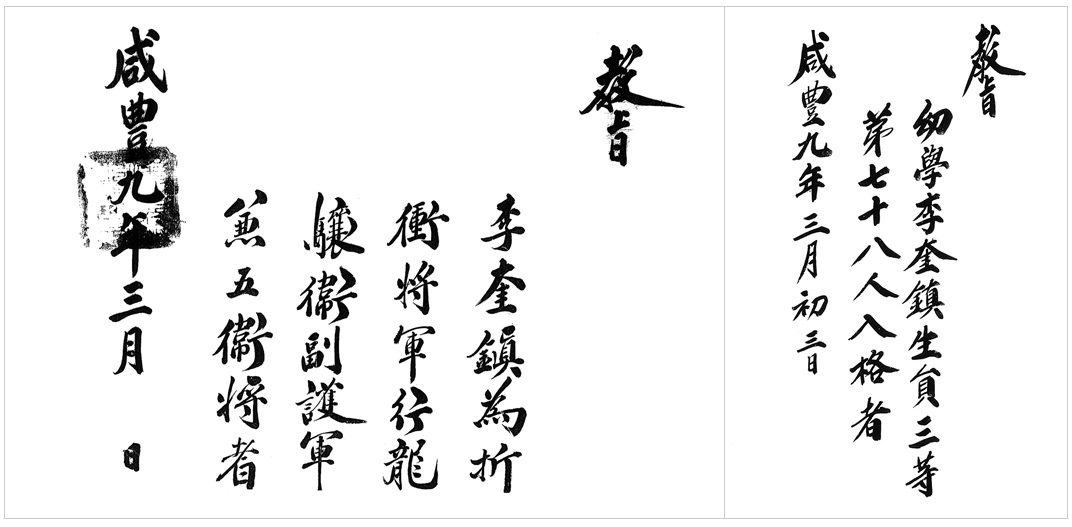 敎旨
幼學李奎鎭生員三等
第七十八人入格者
咸豐九年三月初三日
敎旨
李奎鎭爲折
衝將軍行龍
驤衛副護軍
兼五衛將者
咸豐九年三月 日